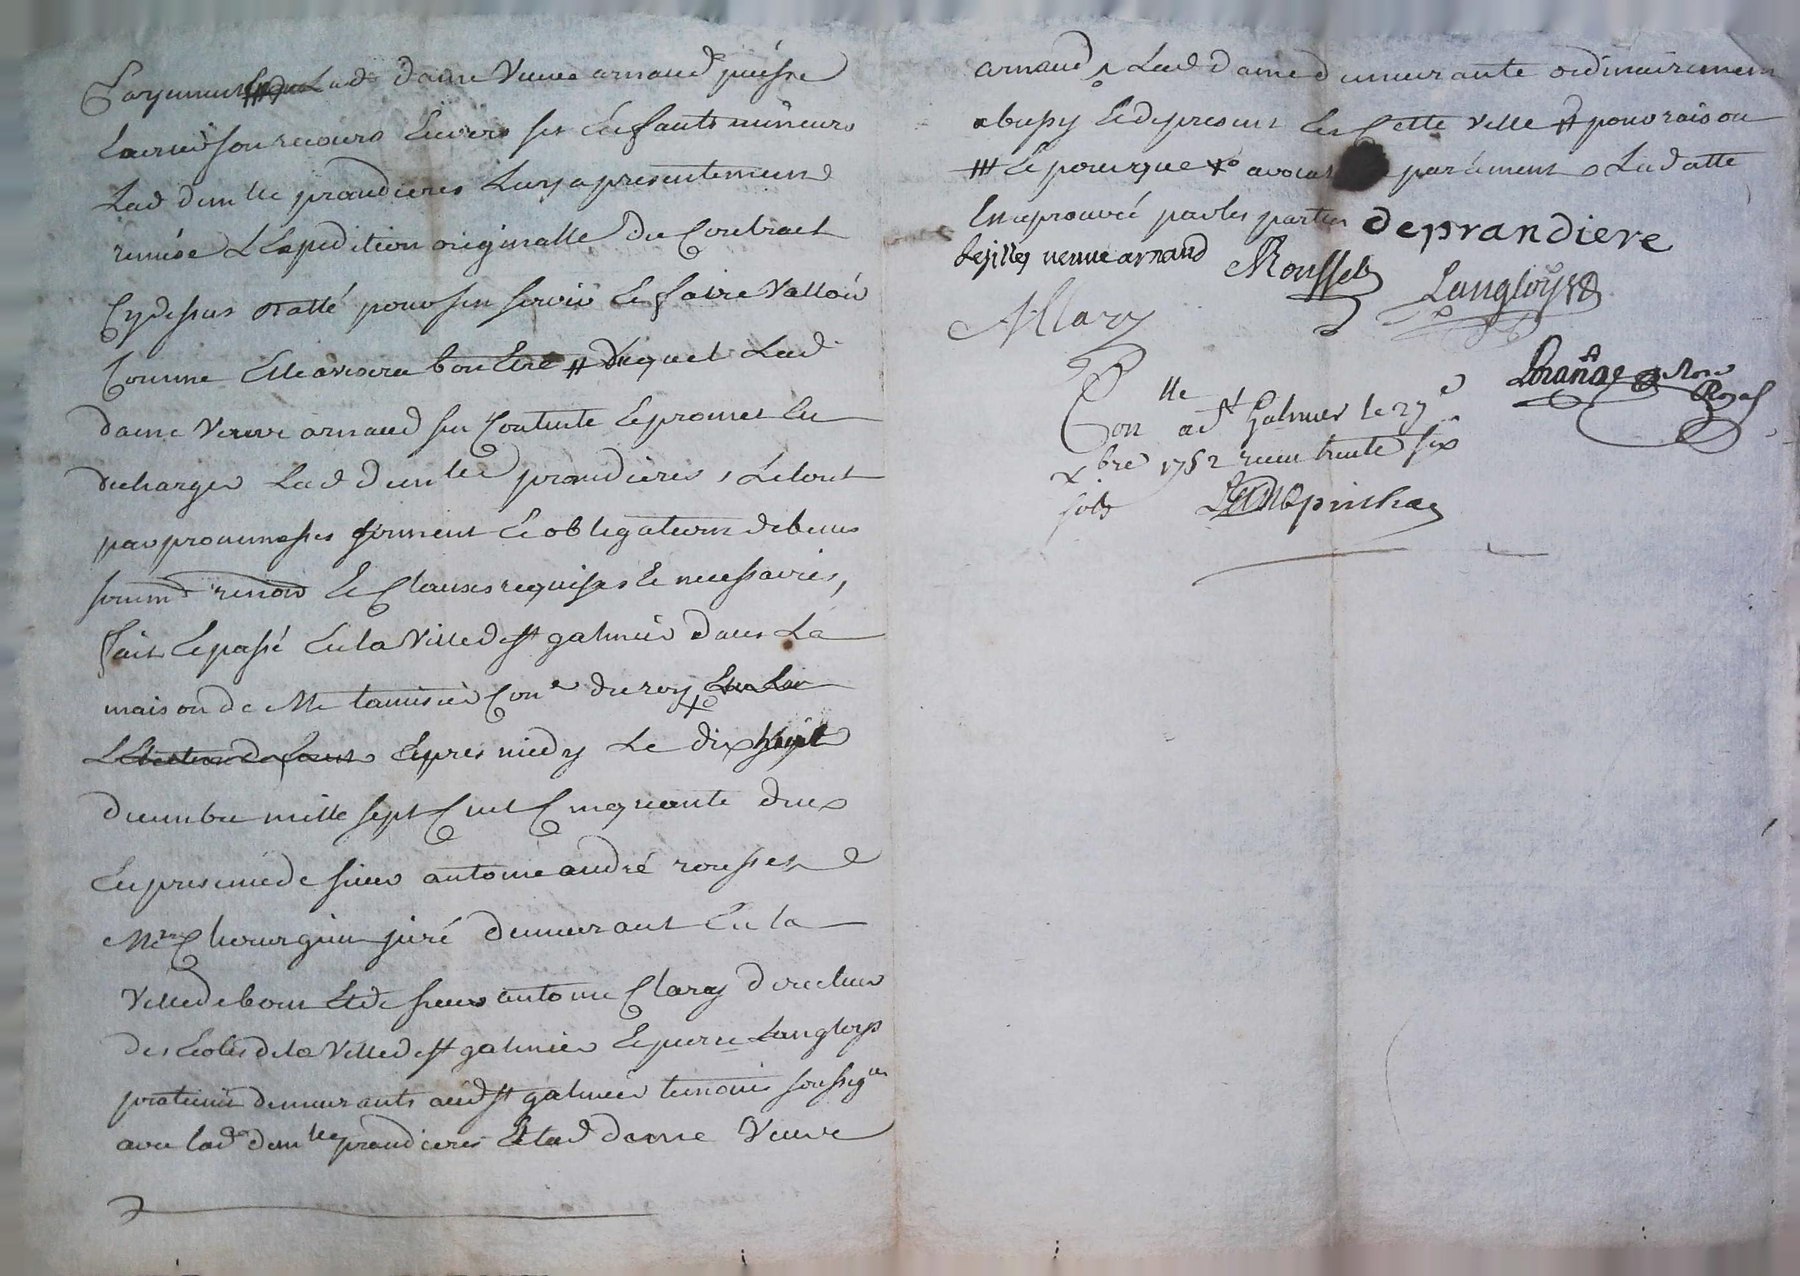 payement Lad dame Veuve arnaud puisse
Exercer son recours Envers ses Enfants mineurs
Lad dem lle prandieres Luy a presentement
remise L'Expedition originalle du Contract
Cydessus datté pour s'en servir Et faire Valloir
Comme Elle avisera bon Estre # duquel Lad
dame Veuve arnaud se Contente Et promet En
decharger Lad dem lle prandieres, Le tout
par promesses serment Et obligations de biens
soum.d renon Et Clauses requises Et necessaires,
fait Et passé En la Ville de st galmier dans La
maison de Me tamisier Con.er du roy
Election de forest Apres midy Le dix huit
decembre mille sept Cent Cinquante deux
En presence de sieur antoine andré rousset
Me Chirurgien juré demeurant En la
Ville de boen Et de sieur antoine Clary directeur
des Ecoles de la Ville de st galmier Et pierre Langloys
praticien demeurants aud st galmier temoins soussig.nes
avec lad dem lle prandieres Et lad dame Veuve
arnaud, Lad dame demeurante ordinairement
a bussy Et de present En Cette Ville # pour raison
# Et pourque avocat parlement Lad atte
En aprouvé par les parties deprandiere
veuve arnaud Rousset Langloys
Allary
Lorange Nore Royal
Con lle a st Galmier le 27e
xbre 1752 receu trente six
sols